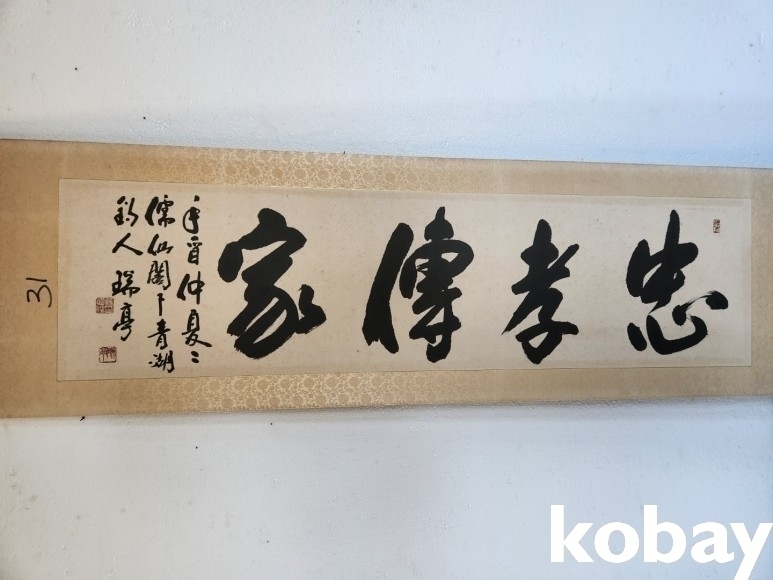 忠孝傳家
辛酉仲夏之
儒仙閣下青湖
釣人 瑞亭
31
kobay